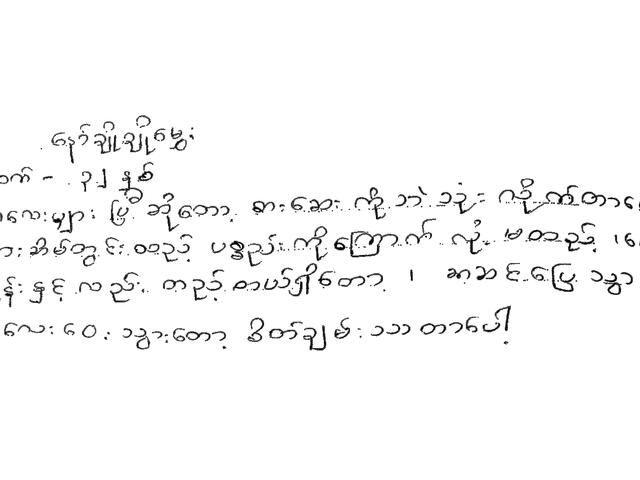 နော်ချိုချိုမွှေး
- ၃၂ နှစ်
လေးများ ပြီ ဆိုတော့ စားဆေး ကို ဘဲ သုံး လိုက်တာ
အိမ်တွင်း တည့် ပစ္စည်းကို ကြောက် လို့ မတည့်
နှင့် လည်း တည့် တယ်ရှိတော့ ၊ အဆင်ပြေ သွာ
လေး ဝေး သွားတော့ စိတ်ချမ်းသာ တာပေါ့